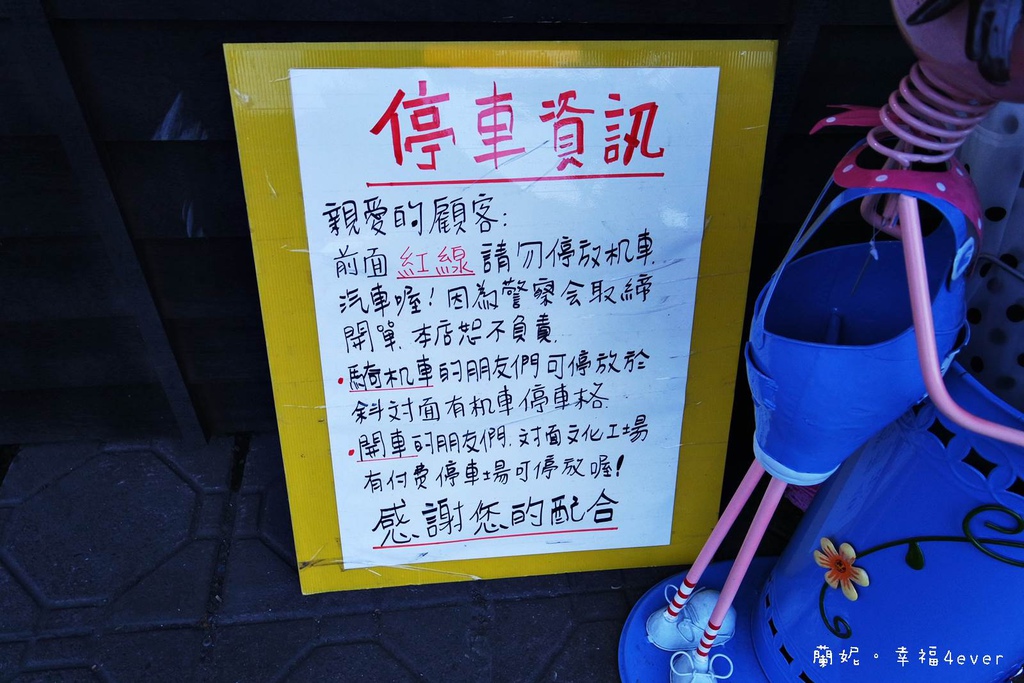 停車資訊
親愛的顧客:
前面紅線請勿停放机車.
汽車喔!因為警察会取締
開單.本店恕不負責.
•騎机車的朋友們可停放於
斜对面有机車停車格.
•開車的朋友們.对面文化工場
有付费停車場可停放喔!
感謝您的配合
蘭妮。幸福4ever